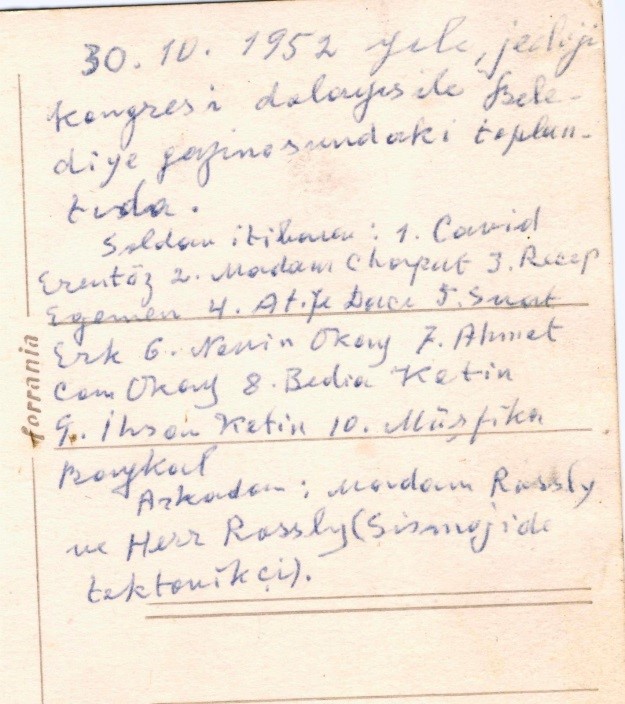 30. 10. 1952 yılı, jeoloji
kongresi dolayısile Bele-
diye gazinosundaki toplan-
tıda.
Soldan itibaren : 1. Cavid
Erentöz 2. Madam Chaput 3. Recep
Egemen 4. Atıfe Dacı 5. Suat
Erk 6. Nevin Okay 7. Ahmet
Can Okay 8. Bedia Ketin
9. İhsan Ketin 10. Müşfika
Baykal
Arkadan : Madam Rossly
ve Herr Rossly (Sismojide
tektonikçi).
ferrania